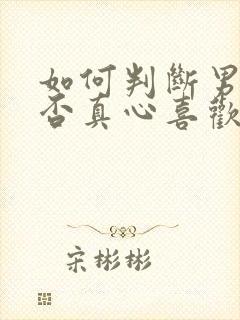 如何判斷男
否真心喜歡
宋彬彬